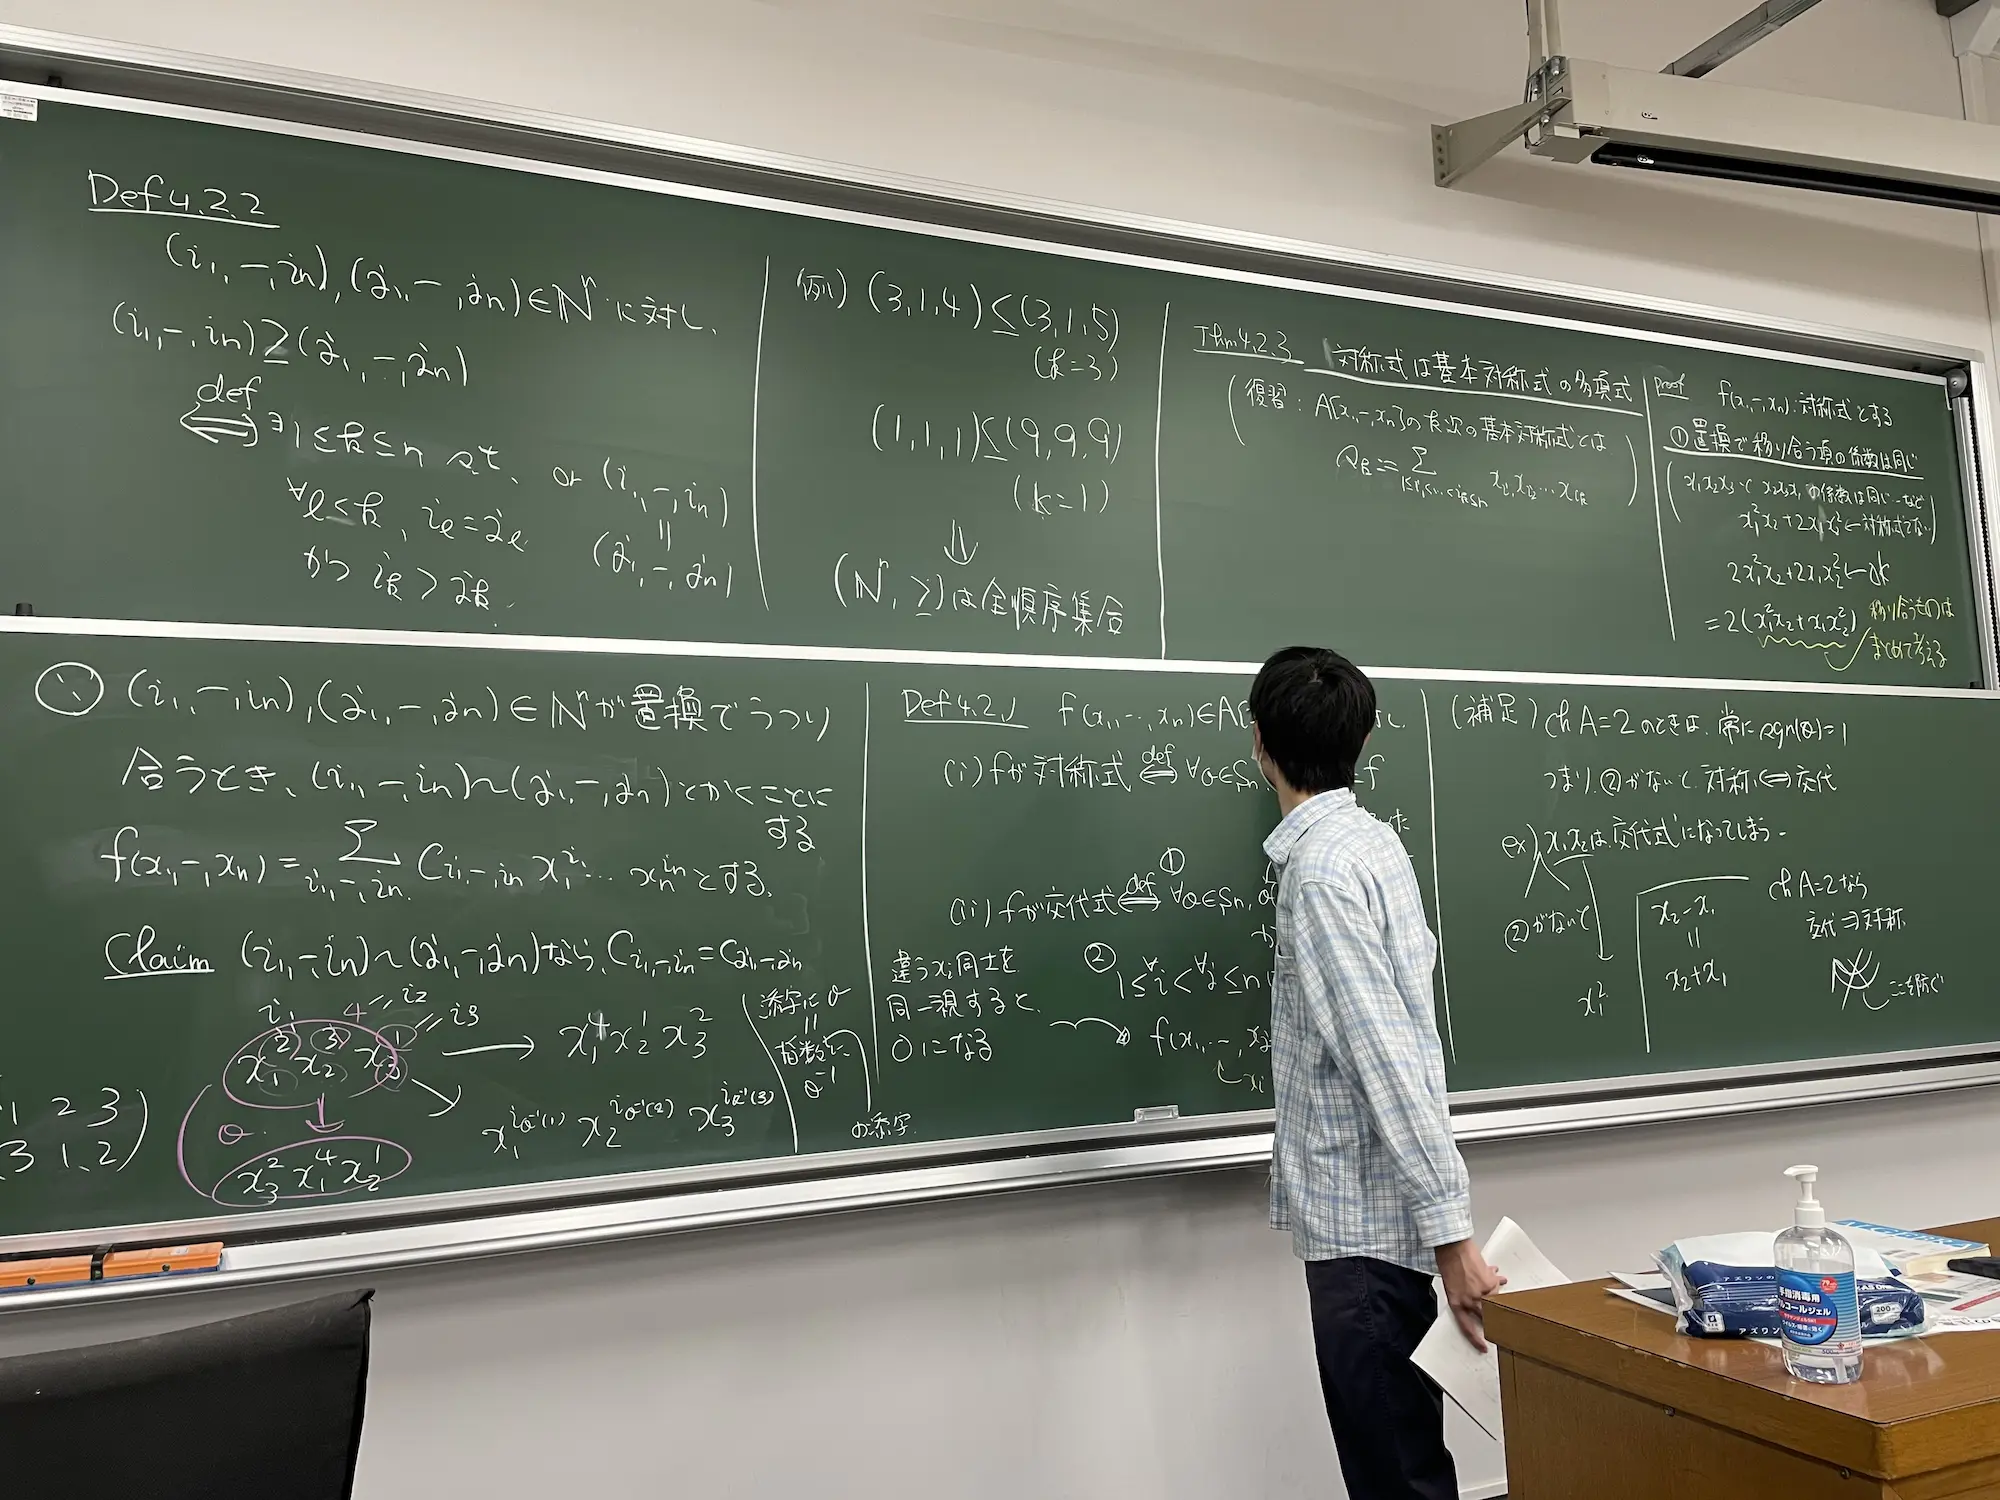 Def 4.2.2
(i₁, …, iₙ), (j₁, …, jₙ) ∈ ℕⁿ に対し、
(i₁, …, iₙ) ≥ (j₁, …, jₙ)
def
⇔ ∃1≤k≤n s.t.
∀l<k, i_l = j_l
かつ i_k > j_k.
or (i₁, …, iₙ)
||
(j₁, …, jₙ)
例) (3,1,4) ≤ (3,1,5)
(k=3)
(1,1,1) ≤ (9,9,9)
(k=1)
⇓
(ℕⁿ, ≥)は全順序集合
Thm 4.2.3 対称式は基本対称式の多項式
(復習: A[x₁, …, xₙ]のk次の基本対称式とは
Σ_{1≤i₁<…<i_k≤n} x_{i₁} x_{i₂} … x_{i_k})
proof f(x₁, …, xₙ): 対称式とする
①置換で移り合う項の係数は同じ
(x₁x₂x₃ と x₂x₃x₁の係数は同じ…など
x₁²x₂+2x₁x₂² ← 対称式でない)
2x₁²x₂+2x₁x₂² ← ok
=2(x₁²x₂+x₁x₂²)
移り合うものは
まとめて考える
∵ (i₁, …, iₙ), (j₁, …, jₙ) ∈ ℕⁿが置換でうつり
合うとき、(i₁, …, iₙ)~(j₁, …, jₙ)とかくことに
する
f(x₁, …, xₙ) = Σ_{i₁, …, iₙ} C_{i₁, …, iₙ} x₁^{i₁} … xₙ^{iₙ} とする。
Claim (i₁, …, iₙ)~(j₁, …, jₙ)なら、C_{i₁, …, iₙ} = C_{j₁, …, jₙ}
i₁ 4=i₂ =i₃
x₁² x₂³ x₃¹ → x₁⁴x₂¹x₃²
1 2 3)
3 1 2)
σ
x₃²x₁⁴x₂¹
x₁^{i_{σ⁻¹(1)}} x₂^{i_{σ⁻¹(2)}} x₃^{i_{σ⁻¹(3)}}
添字にσ
||
指数に
σ⁻¹
の添字
Def 4.2.1 f(x₁, …, xₙ) ∈ A[
(i) fが対称式 def⇔ ∀σ∈Sₙ
f
(ii) fが交代式 def⇔ ①∀σ∈Sₙ, σ
か
② 1≤∀i<∀j≤n
f(x₁, …, x
xᵢ
違うxᵢ同士を
同一視すると、
0になる
(補足) ch A=2 のときは、常に sgn(σ)=1
つまり、②がないと、対称⇔交代
ex) x₁x₂は交代式になってしまう
②がないと
x₁²
x₂-x₁
||
x₂+x₁
ch A=2なら
交代⇒対称
ここを防ぐ
手指消毒用
アルコールジェル
アズワン
200